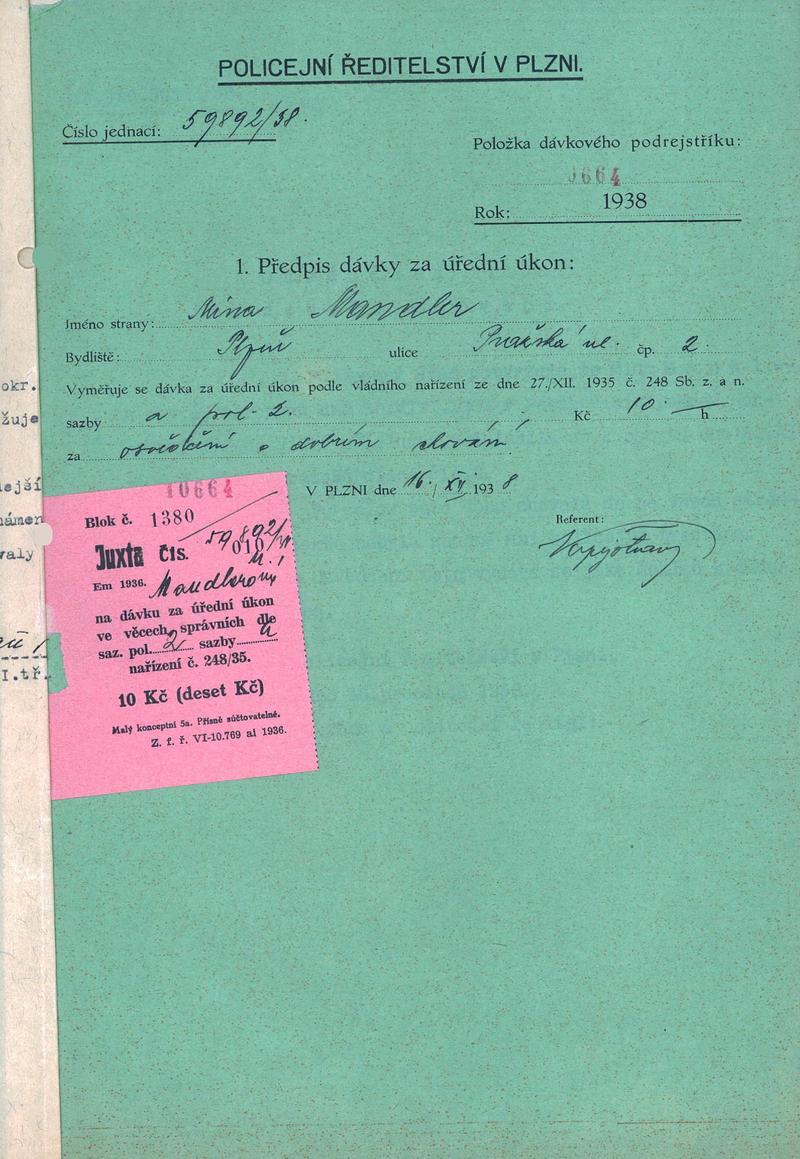 POLICEJNÍ ŘEDITELSTVÍ V PLZNI.
Číslo jednací: 59892/38.
Položka dávkového podrejstříku:
0664
Rok: 1938
1. Předpis dávky za úřední úkon:
Jméno strany: Mina Mandler
Bydliště: Plzeň ulice Pražská ul. čp. 2.
Vyměřuje se dávka za úřední úkon podle vládního nařízení ze dne 27./XII. 1935 č. 248 Sb. z. a n.
sazby a pol. 2. Kč 10.— h
za osvědčení o dobrém chování
V PLZNI dne 16./XII. 1938
Referent:
10664
Blok č. 1380
59892/38
Juxta Čís. 010
Em 1936. Mandlerová
na dávku za úřední úkon
ve věcech správních dle
saz. pol. 2 sazby a
nařízení č. 248/35.
10 Kč (deset Kč)
Malý konceptní 5a. Přísně súčtovatelné.
Z. f. ř. VI-10.769 ai 1936.
okr.
žuje
lejší
námen
valy
I.tř.